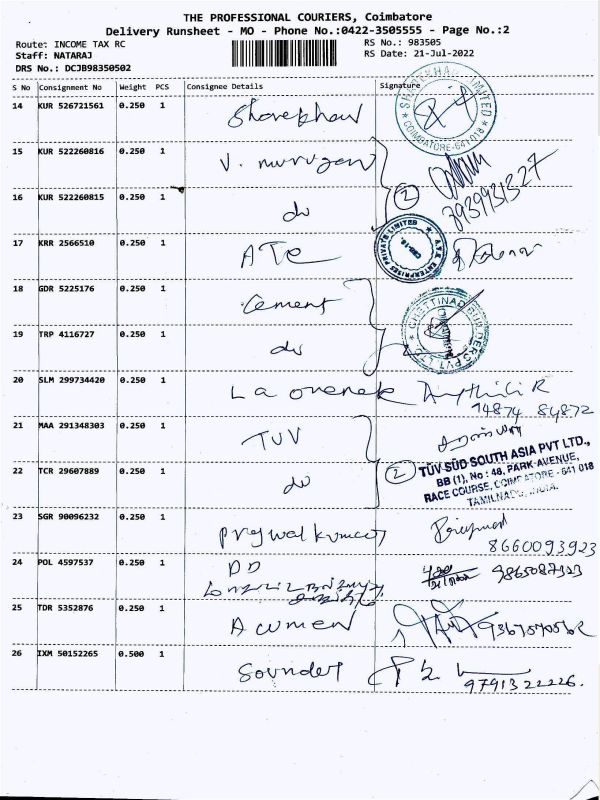 THE PROFESSIONAL COURIERS, Coimbatore
Delivery Runsheet - MO - Phone No.:0422-3505555 - Page No.:2
Route: INCOME TAX RC
RS No.: 983505
Staff: NATARAJ
RS Date: 21-Jul-2022
DRS No.: DCJB98350502
S No Consignment No Weight PCS Consignee Details Signature
14 KUR 526721561 0.250 1
COIMBATORE-641 018
15 KUR 522260816 0.250 1 V. murugan
16 KUR 522260815 0.250 1 do 2 7939931327
17 KRR 2566510 0.250 1 ATE
A.T.E. ENTERPRISES PRIVATE LIMITED
18 GDR 5225176 0.250 1 Cement
CHETTINAD BUILDERS PVT. LTD.
19 TRP 4116727 0.250 1 do
20 SLM 299734420 0.250 1 La
74874 84872
21 MAA 291348303 0.250 1 TUV
22 TCR 29607889 0.250 1 do 2
TÜV SÜD SOUTH ASIA PVT LTD.,
BB (1), No : 48, PARK-AVENUE,
RACE COURSE, COIMBATORE - 641 018
TAMILNADU, INDIA.
23 SGR 90096232 0.250 1
8660093923
24 POL 4597537 0.250 1 DD
25 TDR 5352876 0.250 1 Acumen
26 IXM 50152265 0.500 1 Sounder
9791322226.